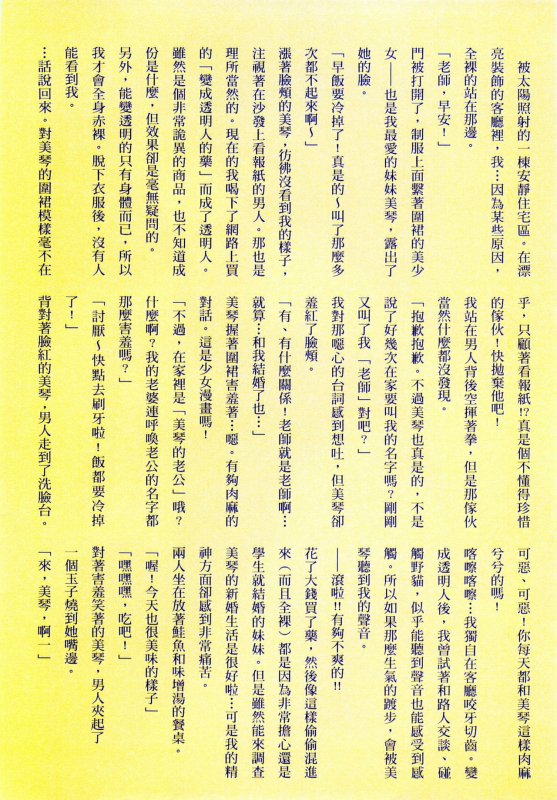 被太陽照射的一棟安靜住宅區。在漂
亮裝飾的客廳裡，我…因為某些原因，
全裸的站在那邊。
「老師，早安！」
門被打開了，制服上面繫著圍裙的美少
女——也是我最愛的妹妹美琴，露出了
她的臉。
「早飯要冷掉了！真是的～叫了那麼多
次都不起來啊～」
漲著臉頰的美琴，彷彿沒看到我的樣子，
注視著在沙發上看報紙的男人。那也是
理所當然的。現在的我喝下了網路上買
的「變成透明人的藥」而成了透明人。
雖然是個非常詭異的商品，也不知道成
份是什麼，但效果卻是毫無疑問的。
另外，能變透明的只有身體而已，所以
我才會全身赤裸。脫下衣服後，沒有人
能看到我。
…話說回來。對美琴的圍裙模樣毫不在
乎，只顧著看報紙!?真是個不懂得珍惜
的傢伙！快拋棄他吧！
我站在男人背後空揮著拳，但是那傢伙
當然什麼都沒發現。
「抱歉抱歉。不過美琴也真是的，不是
說了好幾次在家要叫我的名字嗎？剛剛
又叫了我「老師」對吧？」
我對那噁心的台詞感到想吐，但美琴卻
羞紅了臉頰。
「有、有什麼關係！老師就是老師啊…
就算…和我結婚了也…」
美琴握著圍裙害羞著…噁。有夠肉麻的
對話。這是少女漫畫嗎！
「不過，在家裡是「美琴的老公」哦？
什麼啊？我的老婆連呼喚老公的名字都
那麼害羞嗎？」
「討厭～快點去刷牙啦！飯都要冷掉
了！」
背對著臉紅的美琴，男人走到了洗臉台。
可惡、可惡！你每天都和美琴這樣肉麻
兮兮的嗎！
喀嚓喀嚓…我獨自在客廳咬牙切齒。變
成透明人後，我曾試著和路人交談、碰
觸野貓，似乎能聽到聲音也能感受到感
觸。所以如果那麼生氣的踱步，會被美
琴聽到我的聲音。
——滾啦!!有夠不爽的!!
花了大錢買了藥，然後像這樣偷偷混進
來（而且全裸）都是因為非常擔心還是
學生就結婚的妹妹。但是雖然能來調查
美琴的新婚生活是很好啦…可是我的精
神方面卻感到非常痛苦。
兩人坐在放著鮭魚和味增湯的餐桌。
「喔！今天也很美味的樣子」
「嘿嘿嘿，吃吧！」
對著害羞笑著的美琴，男人夾起了
一個玉子燒到她嘴邊。
「來，美琴，啊—」